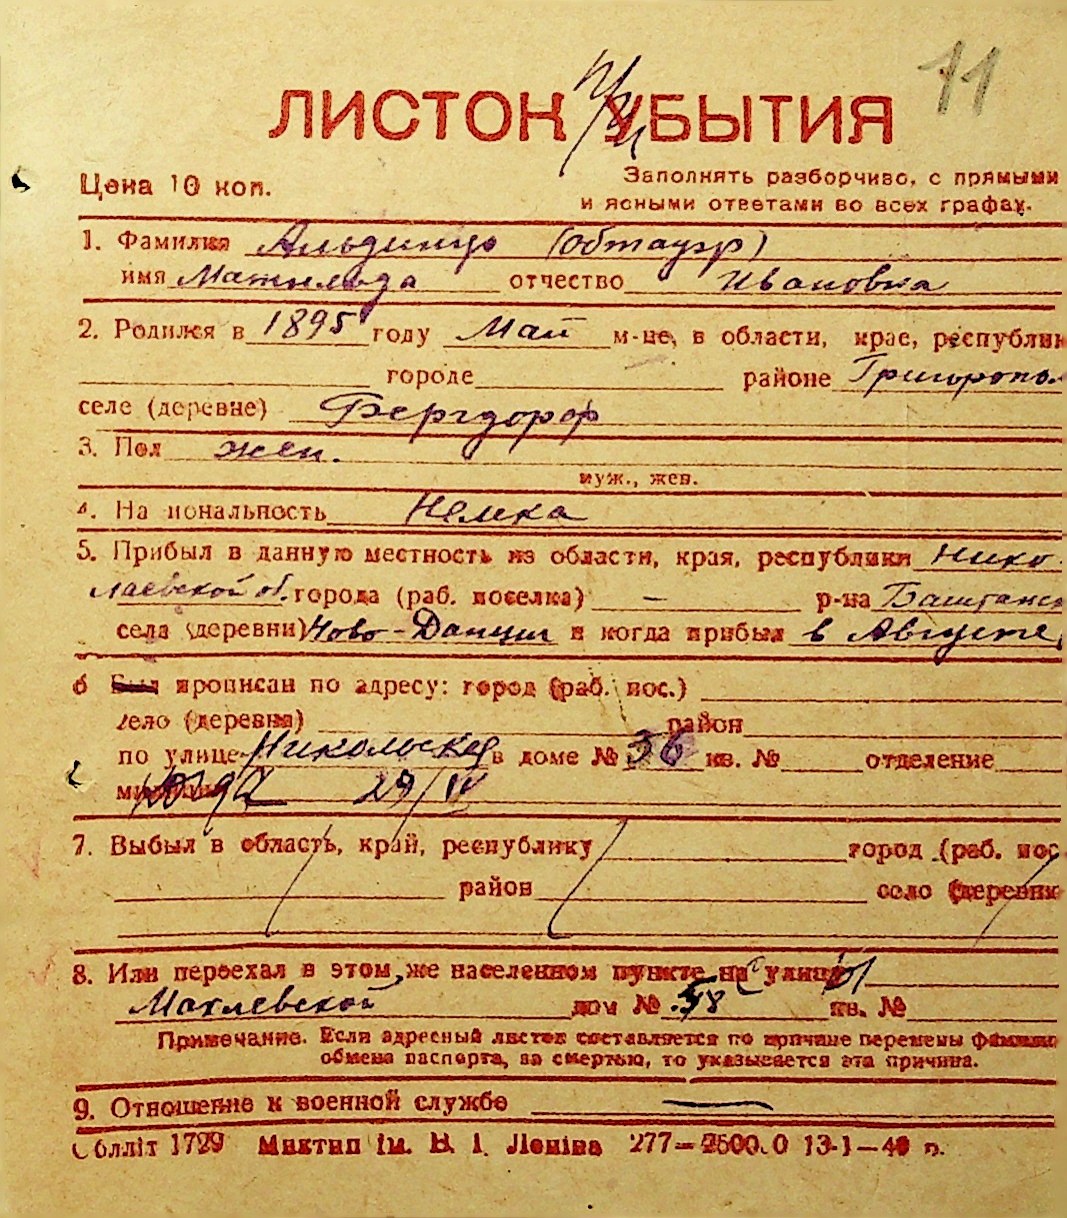 11
ЛИСТОК УБЫТИЯ
Цена 10 коп.
Заполнять разборчиво, с прямыми
и ясными ответами во всех графах.
1. Фамилия Альдингер (Обтауэр)
имя Матильда отчество Ивановна
2. Родился в 1895 году Май м-це, в области, крае, республик
городе районе Григоропол
селе (деревне) Бергдорф
3. Пол жен.
муж., жен.
4. На иональность Немка
5. Прибыл в данную местность из области, края, республики Нико
лаевской об. города (раб. поселка) — р-на Баштанск
села (деревни) Ново-Данциг и когда прибыл в Августе
6 Был прописан по адресу: город (раб. пос.)
село (деревня) район
по улице Никольской в доме № 36 кв. № отделение
29/IV
7. Выбыл в область, край, республику город (раб. пос
район село (деревня
8. Или переехал в этом же населенном пункте на улицу
дом № 58 кв. №
Примечание. Если адресный листок составляется по причине перемены фамилии
обмена паспорта, за смертью, то указывается эта причина.
9. Отношение к военной службе —
Облліт 1729 Миктип Ім. В. І. Леніна 277—2500.0 13-1—4 р.